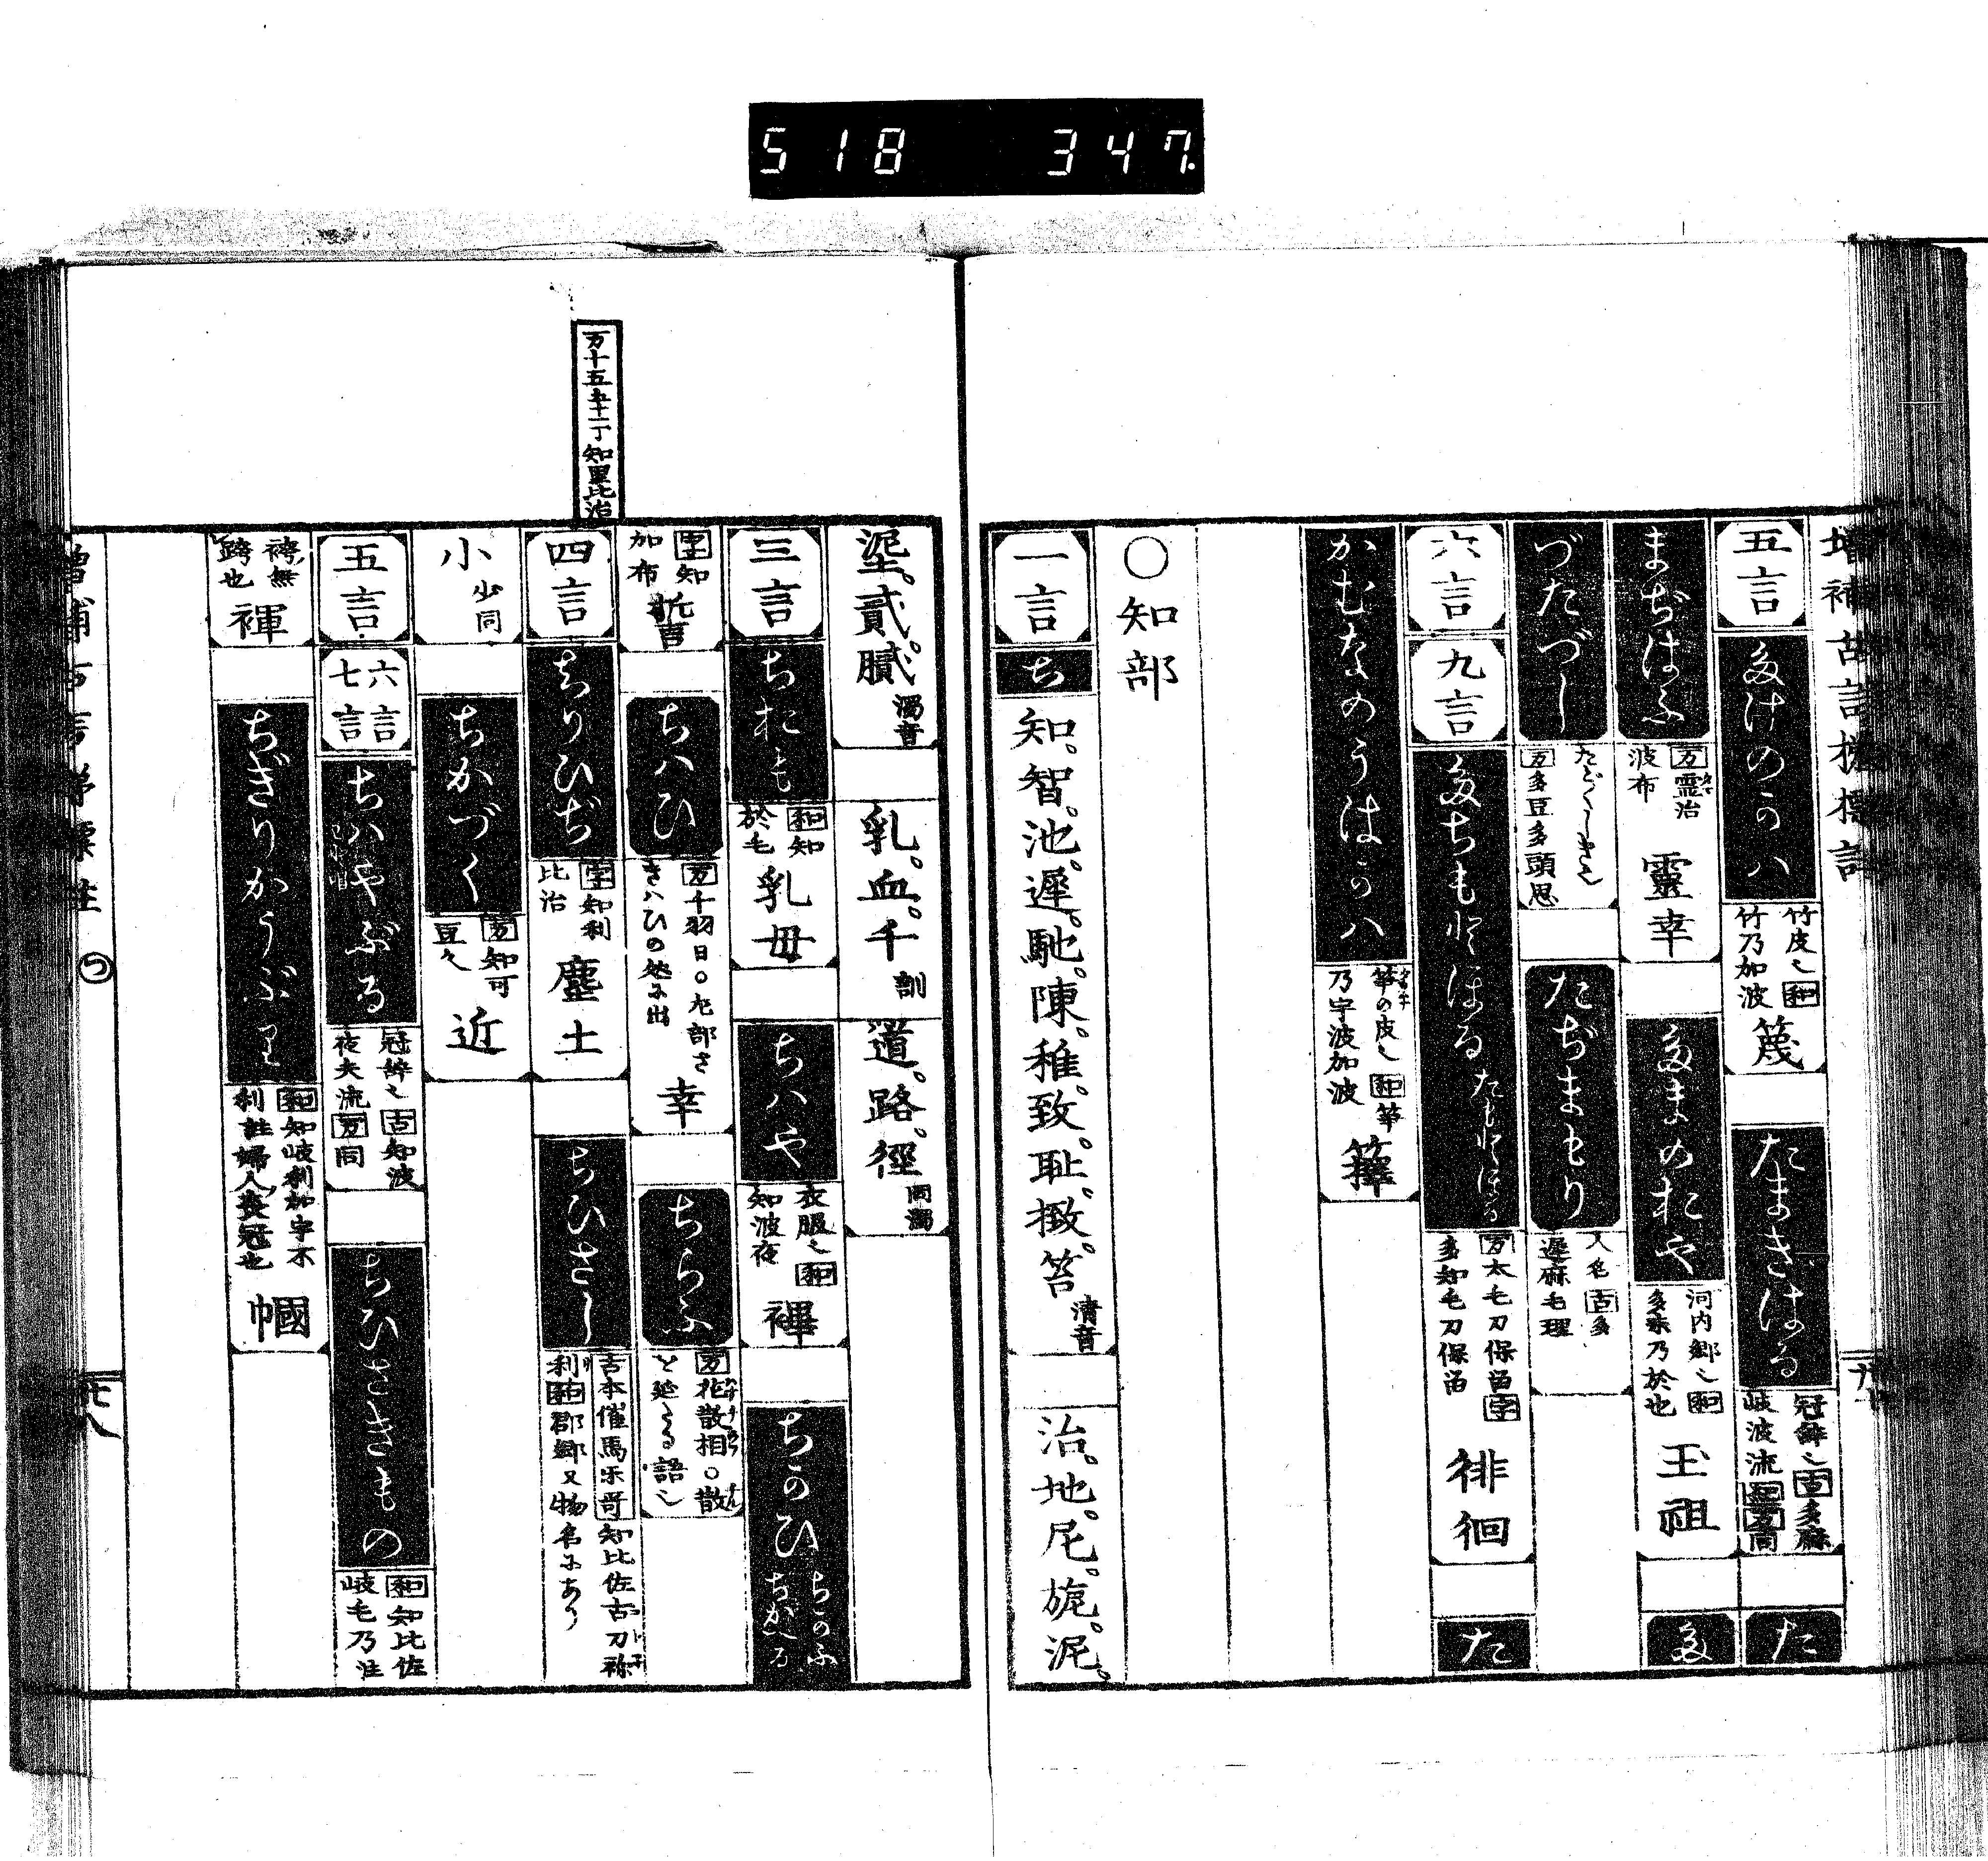 518 347
五言 たけのかハ 竹皮也 和 竹乃加波 篾 たまきはる 冠辞也 古 多麻岐波流 紀万同 た
まぢはふ 万 霊治波布 靈幸 たまのおや 河内郷也 和 多末乃於也 玉祖 た
づたづし たど〳〵しき也 万 多豆多頭思 たぢまもり 人名 古 多遅麻毛理
六言 九言 たちもとほる たもとほる 万 太毛刀保留 字 多知毛刀保留 徘徊 た
かむなのうはかハ 筍の皮也 和 筍乃宇波加波 籜
○知部
一言 ち 知。智。池。遲。馳。陳。稚。致。耻。緻。笞 清音 治。地。尼。旎。泥。
埿。貳。膩 濁音 乳。血。千 訓 道。路。徑 同濁
三言 ちおも 和 知於毛 乳母 ちハや 衣服也 和 知波夜 襅 ちかひ ちかふ ちかへる
里 知加布 託言 ちハひ 万 千羽日○左部さきハひの処に出 幸 ちらふ 万 花散相○散を延たる語也
万十五 五十一丁 知里比治
四言 ちりひぢ 字 知利比治 塵土 ちひさし 古本催馬楽哥 知比佐古刀祢利 和 郡郷又物名にあり
小 少同 ちかづく 万 知可豆久 近
五言 六言 七言 ちハやぶる 冠辞也 古 知波夜夫流 万同 ちひさきもの 和 知比佐岐毛乃 注
袴無跨也 褌 ちぎりかうぶり 和 知岐利加宇不利 註 婦人喪冠也 幗